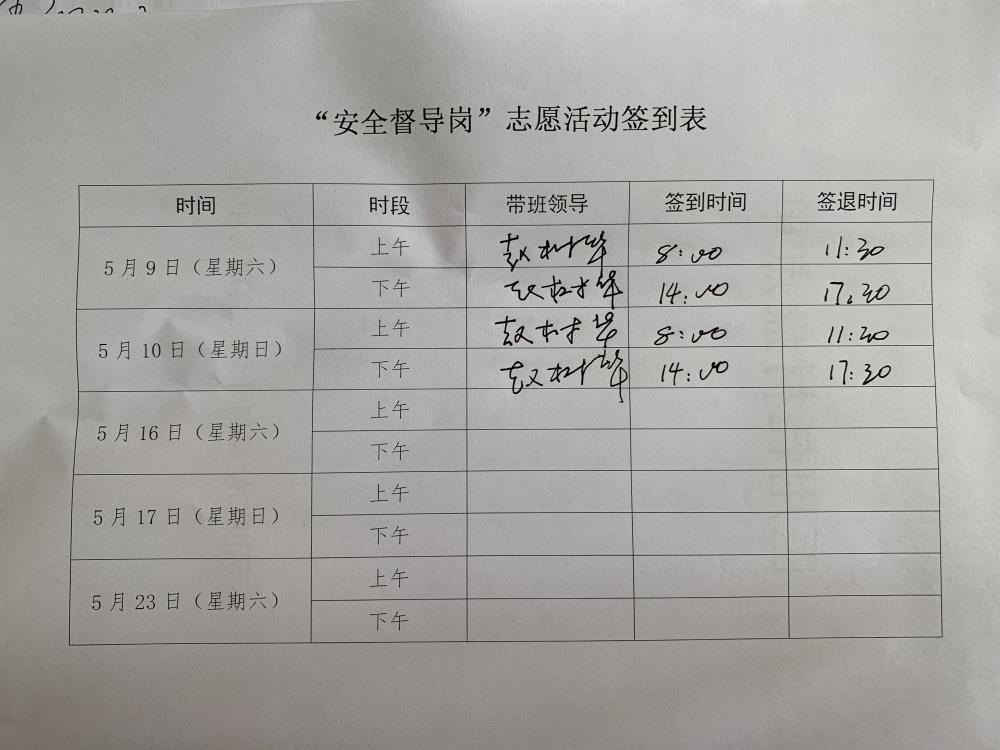 “安全督导岗”志愿活动签到表
时间 时段 带班领导 签到时间 签退时间
5月9日（星期六） 上午 赵树华 8:00 11:30
下午 赵树华 14:00 17:30
5月10日（星期日） 上午 赵树华 8:00 11:30
下午 赵树华 14:00 17:30
5月16日（星期六） 上午
下午
5月17日（星期日） 上午
下午
5月23日（星期六） 上午
下午